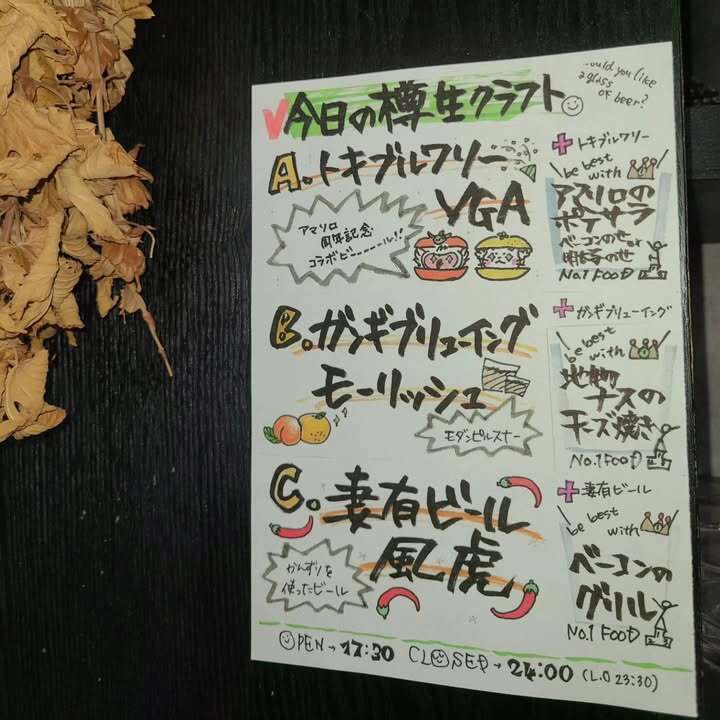 ✓今日の樽生クラフト
would you like
a glass
of beer?
A. トキブルワリー
VGA
アマリロ
周年記念
コラボビーーーーール!!
+トキブルワリー
be best
with
アマリロの
ポテサラ
ベーコンのせor
明太子のせ
No.1 FOOD
B. ガンギブリューイング
モーリッシュ
モダンピルスナー
+ガンギブリューイング
be best
with
地物
ナスの
チーズ焼き
No.1 FOOD
C. 妻有ビール
風虎
かんずりを
使ったビール
+妻有ビール
be best
with
ベーコンの
グリル
No.1 FOOD
OPEN→17:30 CLOSED→24:00 (L.O 23:30)